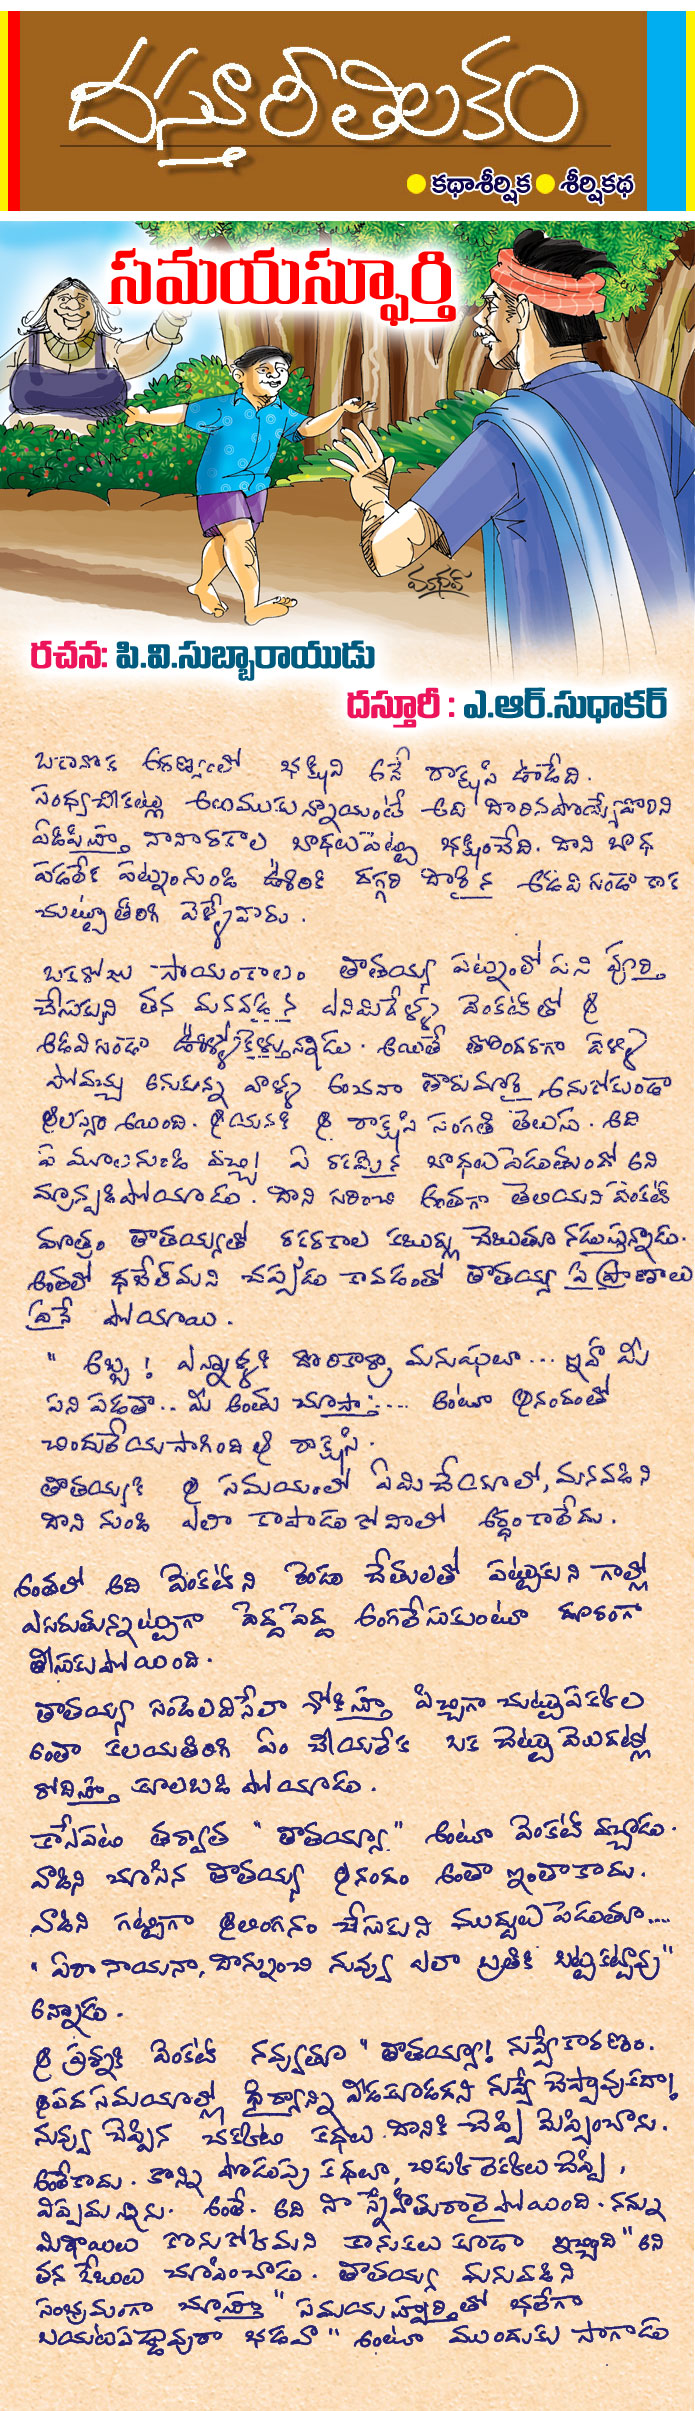 దస్తూరీతిలకం
● కథాశీర్షిక ● శీర్షికథ
సమయస్ఫూర్తి
మాధవ్
రచన: పి.వి.సుబ్బారాయుడు
దస్తూరీ : ఎ.ఆర్.సుధాకర్
ఒకానొక అరణ్యంలో భక్షిని అనే రాక్షసి ఉండేది.
సంధ్యచీకట్లు అలుముకున్నాయంటే అది దారినపొయ్యేవారిని
ఏడిపిస్తూ నానారకాల బాధలుపెట్టి భక్షించేది. దాని బాధ
పడలేక పట్నంనుండి ఊరికి దగ్గరి దారైన అడవిగుండా కాక
చుట్టూతిరిగి వెళ్ళేవారు.
ఒకరోజు సాయంకాలం తాతయ్య పట్నంలో పని పూర్తి
చేసుకుని తన మనవడైన ఎనిమిదేళ్ళ వెంకట్ తో ఆ
అడవిగుండా ఊళ్ళోకెళ్తున్నాడు. అయితే తొందరగా వెళ్ళి
పోవచ్చు అనుకున్న వాళ్ళ అంచనా తారుమారై అనుకోకుండా
ఆలస్యం అయింది. ఆయనకి ఆ రాక్షసి సంగతి తెలుసు. అది
ఏ మూలనుండి వచ్చి ఏ రకమైన బాధలుపెడుతుందో అని
మ్రాన్పడిపోయాడు. దాని గురించి అంతగా తెలియని వెంకట్
మాత్రం తాతయ్యతో రకరకాల కబుర్లు చెబుతూ నడుస్తున్నాడు.
అంతలో ధబేల్‌మని చప్పుడు కావడంతో తాతయ్య పై ప్రాణాలు
పైనే పోయాయి.
" అబ్బ! ఎన్నాళ్ళకి దొరికార్రా మనుషులూ... ఇహ మీ
పని పడతా.. మీ అంతు చూస్తా.... అంటూ ఆనందంతో
చిందులేయసాగింది ఆ రాక్షసి.
తాతయ్యకి ఆ సమయంలో ఏమిచేయాలో, మనవడిని
దాని నుండి ఎలా కాపాడుకోవాలో అర్థంకాలేదు.
అంతలో అది వెంకట్ ని రెండు చేతులతో పట్టుకుని గాల్లో
ఎగురుతున్నట్టుగా పెద్దపెద్ద అంగలేసుకుంటూ దూరంగా
తీసుకుపోయింది.
తాతయ్య గుండెలవిసేలా శోకిస్తూ పిచ్చిగా చుట్టుపక్కల
అంతా కలయతిరిగి ఏం చేయలేక ఒక చెట్టు మొదట్లో
రోదిస్తూ కూలబడి పోయాడు.
కాసేపటి తర్వాత " తాతయ్యా" అంటూ వెంకట్ వచ్చాడు.
వాడిని చూసిన తాతయ్య ఆనందం అంతా ఇంతాకాదు.
వాడిని గట్టిగా ఆలింగనం చేసుకుని ముద్దులు పెడుతూ....
" ఏరా నాయనా, దాన్నుంచి నువ్వు ఎలా బ్రతికి బట్టకట్టావు"
అన్నాడు.
ఆ ప్రశ్నకి వెంకట్ నవ్వుతూ " తాతయ్యా! నువ్వేకారణం.
ఆపద సమయాల్లో ధైర్యాన్ని వీడకూడదని నువ్వే చెప్పావుకదా!
నువ్వు చెప్పిన చక్కటి కథలు దానికి చెప్పి మెప్పించాను.
అంతేకాదు. కొన్ని పొడుపు కథలూ, చిక్కు లెక్కలు చెప్పి,
విప్పమన్నాను. అంతే. అది నా స్నేహితురాలైపోయింది. నన్ను
మిఠాయిలు కొనుకోమని కానుకలు కూడా ఇచ్చింది" అని
తన జేబులు చూపించాడు. తాతయ్య మనవడిని
సంభ్రమంగా చూస్తూ " సమయస్ఫూర్తితో భలేగా
బయటపడ్డావురా భడవా" అంటూ ముందుకు సాగాడు